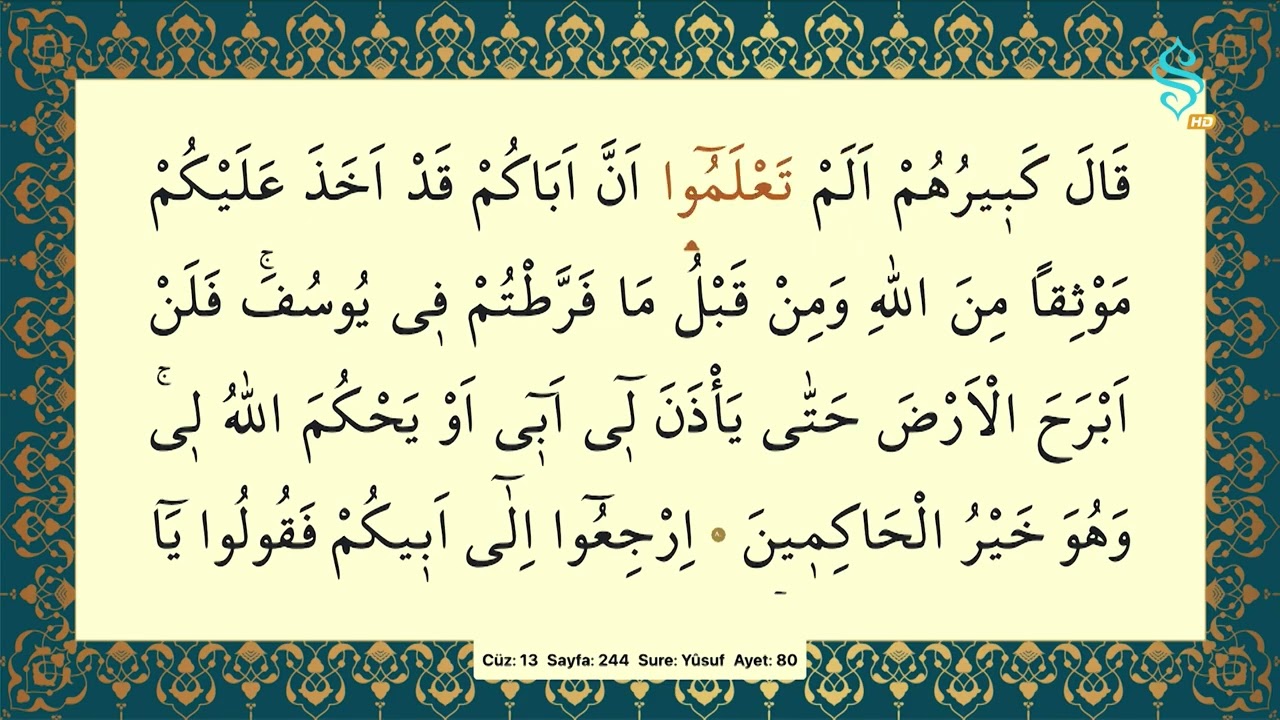 HD
قَالَ كَب۪يرُهُمْ اَلَمْ تَعْلَمُٓوا اَنَّ اَبَاكُمْ قَدْ اَخَذَ عَلَيْكُمْ
مَوْثِقاً مِنَ اللّٰهِ وَمِنْ قَبْلُ مَا فَرَّطْتُمْ ف۪ى يُوسُفَۚ فَلَنْ
اَبْرَحَ الْاَرْضَ حَتّٰى يَأْذَنَ ل۪ٓى اَب۪ٓى اَوْ يَحْكُمَ اللّٰهُ ل۪ىۚ
وَهُوَ خَيْرُ الْحَاكِم۪ينَ ٨٠ اِرْجِعُٓوا اِلٰٓى اَب۪يكُمْ فَقُولُوا يَٓا
Cüz: 13 Sayfa: 244 Sure: Yûsuf Ayet: 80